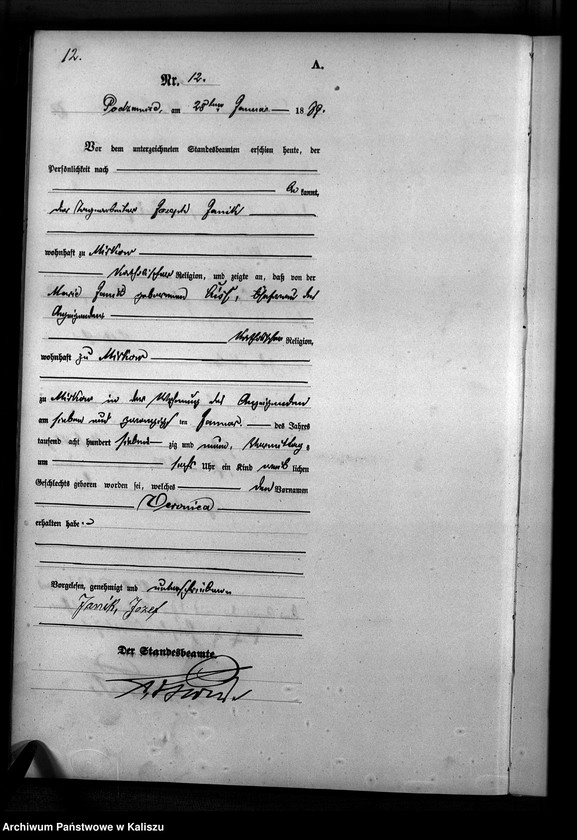 12.
A.
Nr. 12.
Podzamcze, am 28ten Januar 1879.
Vor dem unterzeichneten Standesbeamten erschien heute, der
Persönlichkeit nach
bekannt,
der Tagearbeiter Joseph Janik
wohnhaft zu Mirkow
katholischer Religion, und zeigte an, daß von der
Marie Janik geborenen Ehefrau des
Anzeigenden
katholischer Religion,
wohnhaft zu Mirkow
zu Mirkow in der Wohnung des Anzeigenden
am sieben und zwanzigsten ten Januar des Jahres
tausend acht hundert siebenzig und neun, Vormittags
um sechs Uhr ein Kind weiblichen
Geschlechts geboren worden sei, welches den Vornamen
Veronica
erhalten habe.
Vorgelesen, genehmigt und unterschrieben
Janik, Jozef
Der Standesbeamte.
Archiwum Państwowe w Kaliszu